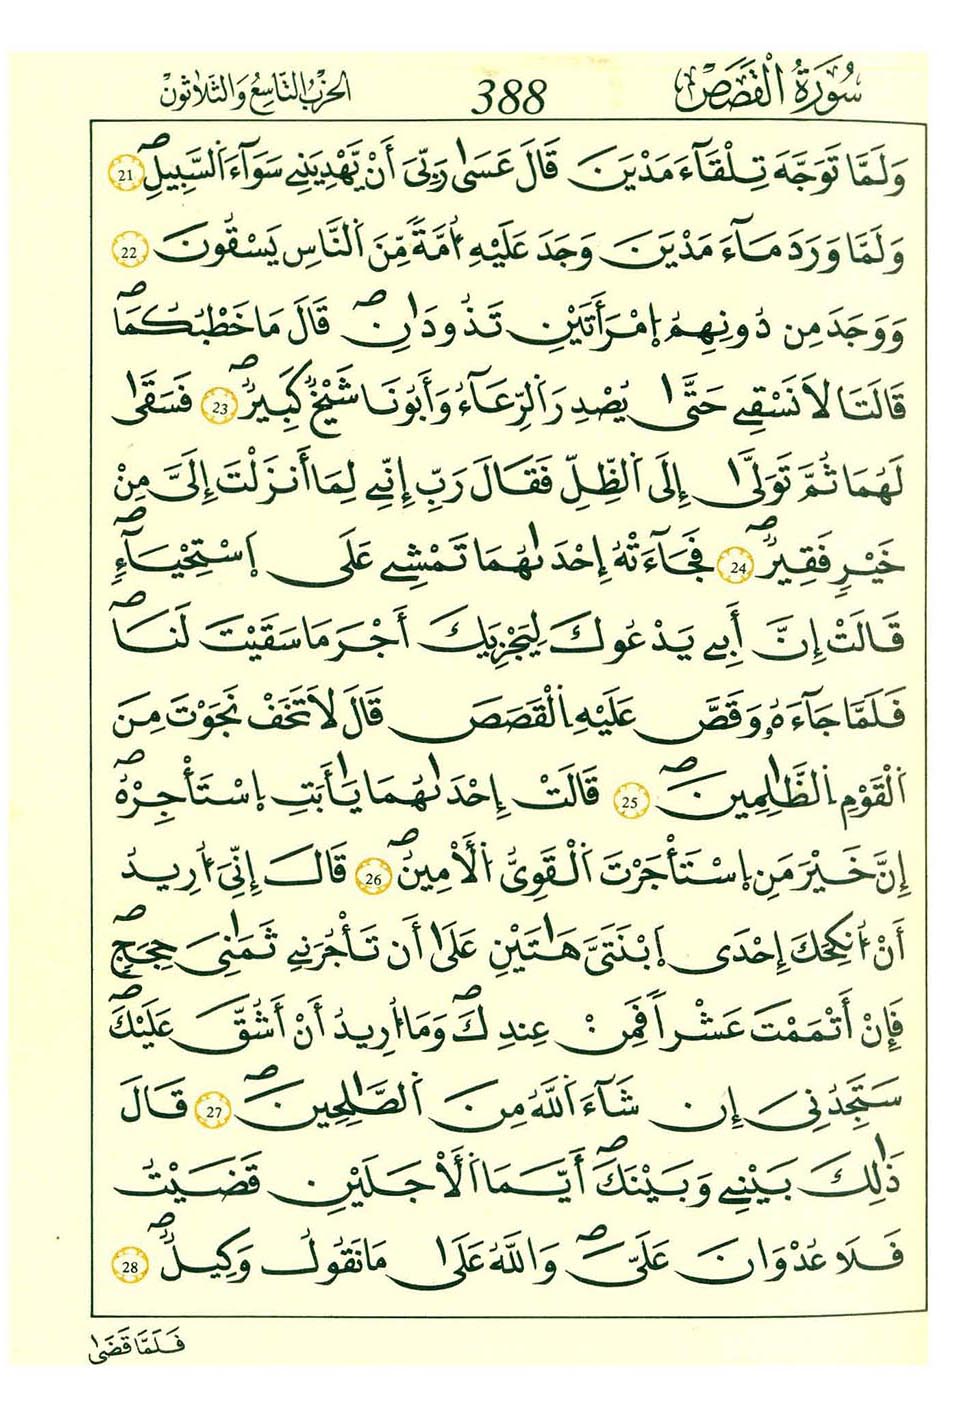 سُورَةُ الْقَصَصِ 388 الحِزْبُ التَّاسِعُ وَالثَّلَاثُونَ
وَلَمَّا تَوَجَّهَ تِلْقَآءَ مَدْيَنَ قَالَ عَسَىٰ رَبِّىَ أَنْ يَّهْدِيَنِے سَوَآءَ اَلسَّبِيلِۖ 21
وَلَمَّا وَرَدَ مَآءَ مَدْيَنَ وَجَدَ عَلَيْهِ أُمَّةً مِّنَ اَلنَّاسِ يَسْقُونَ 22
وَوَجَدَ مِن دُونِهِمُ اِمْرَأَتَيْنِ تَذُودَٰنِۖ قَالَ مَا خَطْبُكُمَاۖ
قَالَتَا لَا نَسْقِے حَتَّىٰ يُصْدِرَ اَلرِّعَآءُ وَأَبُونَا شَيْخٌ كَبِيرٌۖ 23 فَسَقَىٰ
لَهُمَا ثُمَّ تَوَلَّىٰ إِلَى اَلظِّلِّ فَقَالَ رَبِّ إِنِّے لِمَا أَنزَلْتَ إِلَىَّ مِنْ
خَيْرٍ فَقِيرٌۖ 24 فَجَآءَتْهُ إِحْدَىٰهُمَا تَمْشِے عَلَى اَسْتِحْيَآءٍۖ
قَالَتْ إِنَّ أَبِے يَدْعُوكَ لِيَجْزِيَكَ أَجْرَ مَا سَقَيْتَ لَنَاۖ
فَلَمَّا جَآءَهُۥ وَقَصَّ عَلَيْهِ اِلْقَصَصَ قَالَ لَا تَخَفْ نَجَوْتَ مِنَ
اَلْقَوْمِ اِلظَّٰلِمِينَۖ 25 قَالَتْ إِحْدَىٰهُمَا يَٰأَبَتِ اِسْتَأْجِرْهُۖ
إِنَّ خَيْرَ مَنِ اِسْتَأْجَرْتَ اَلْقَوِىُّ اُلْأَمِينُۖ 26 قَالَ إِنِّىَ أُرِيدُ
أَنْ أُنكِحَكَ إِحْدَى اَبْنَتَىَّ هَٰتَيْنِ عَلَىٰ أَن تَأْجُرَنِے ثَمَٰنِىَ حِجَجٍۖ
فَإِنْ أَتْمَمْتَ عَشْراً فَمِنْ عِندِكَۖ وَمَا أُرِيدُ أَنْ أَشُقَّ عَلَيْكَۖ
سَتَجِدُنِىَ إِن شَآءَ اَللَّهُ مِنَ اَلصَّٰلِحِينَۖ 27 قَالَ
ذَٰلِكَ بَيْنِے وَبَيْنَكَۖ أَيَّمَا اَلْأَجَلَيْنِ قَضَيْتُ
فَلَا عُدْوَانَ عَلَىَّۖ وَاللَّهُ عَلَىٰ مَا نَقُولُ وَكِيلٌۖ 28
فَلَمَّا قَضَىٰ